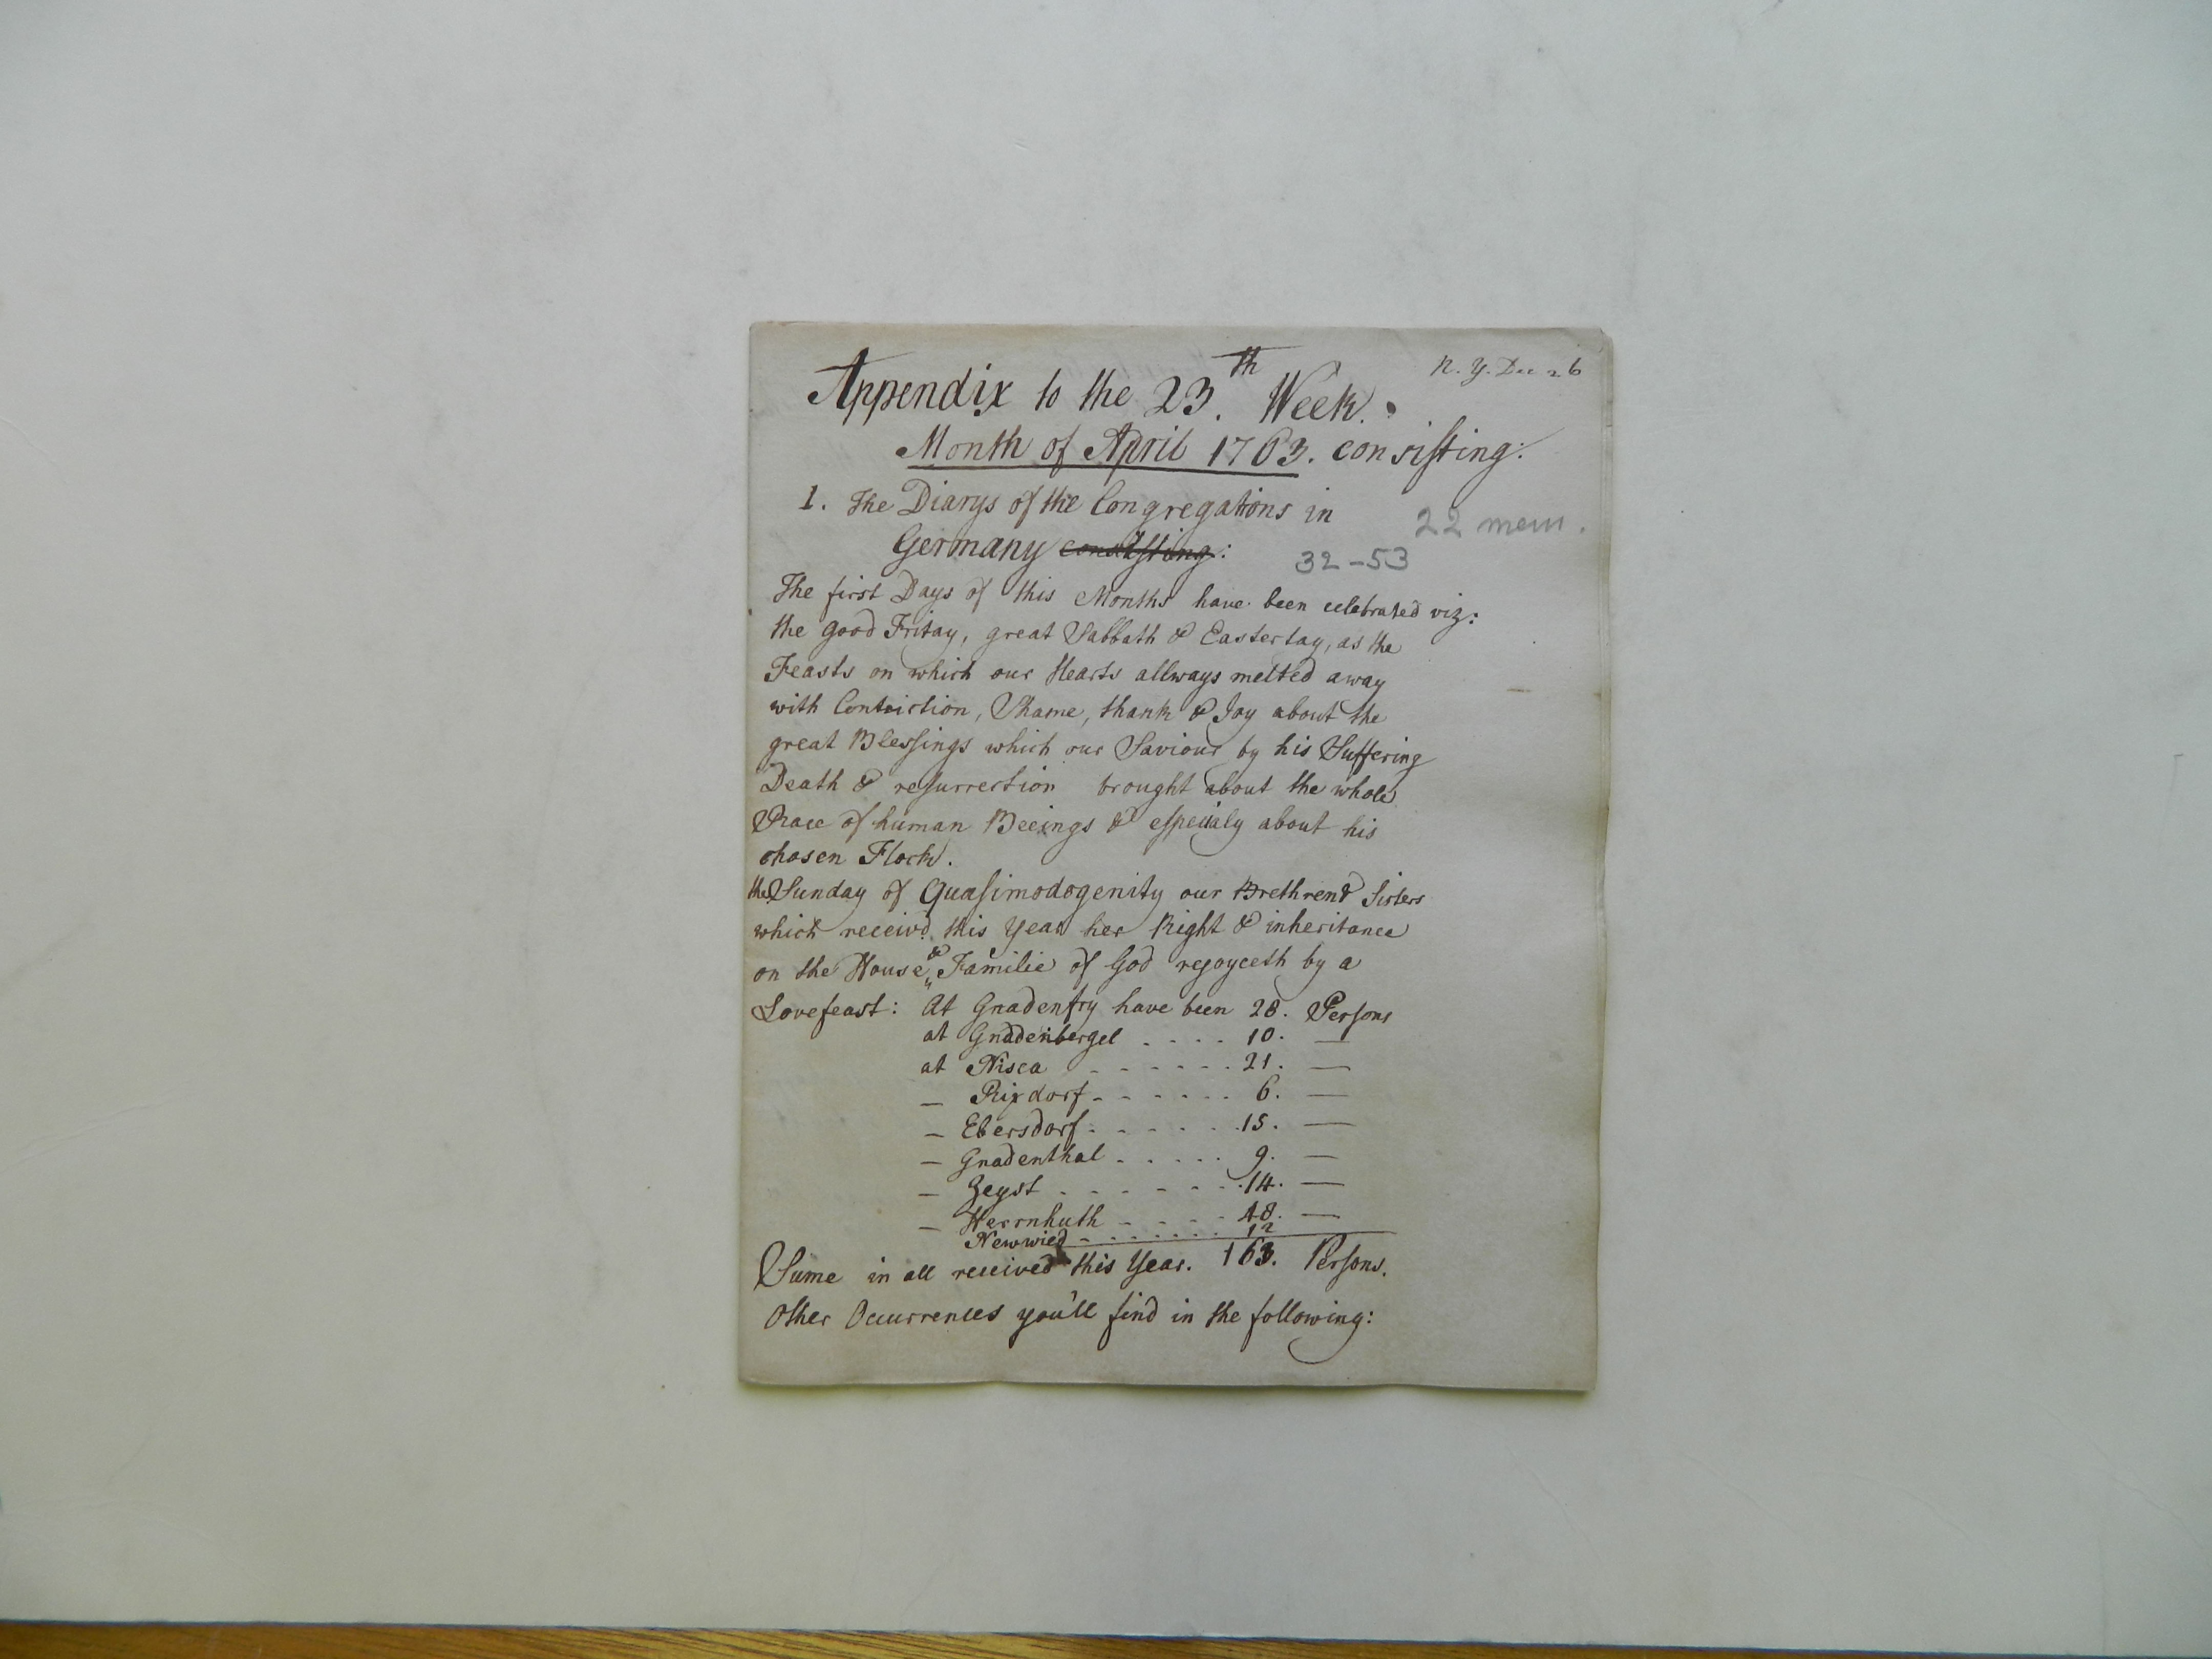 N. Y. Dec 26
Appendix to the 23.th Week.
Month of April 1763. consisting:
1. The Diarys of the Congregations in
22 mem.
Germany consisting:
32-53
The first Days of this Months have been celebrated viz:
the good Friday, great Sabbath & Easterday, as the
Feasts on which our Hearts allways melted away
with Contriction, Shame, thank & Joy about the
great Blessings which our Saviour by his Suffering
Death & resurrection brought about the whole
Race of human Beeings & especialy about his
chosen Flock.
the Sunday of Quasimodogenity our Brethren & Sisters
which receivd this Year her Right & inheritance
on the House & Familie of God rejoyceth by a
Lovefeast: At Gnadenfry have been 28. Persons
at Gnadenbergel .... 10. —
at Nisea ------ 21. —
— Rixdorf ------ 6. —
— Ebersdorf ------ 15. —
— Gnadenthal ----- 9. —
— Zeyst ------ 14. —
— Herrnhuth ---- 48. —
Newwied ------- 12
Sume in all received this Year. 163. Persons.
Other Occurrences you'll find in the following: